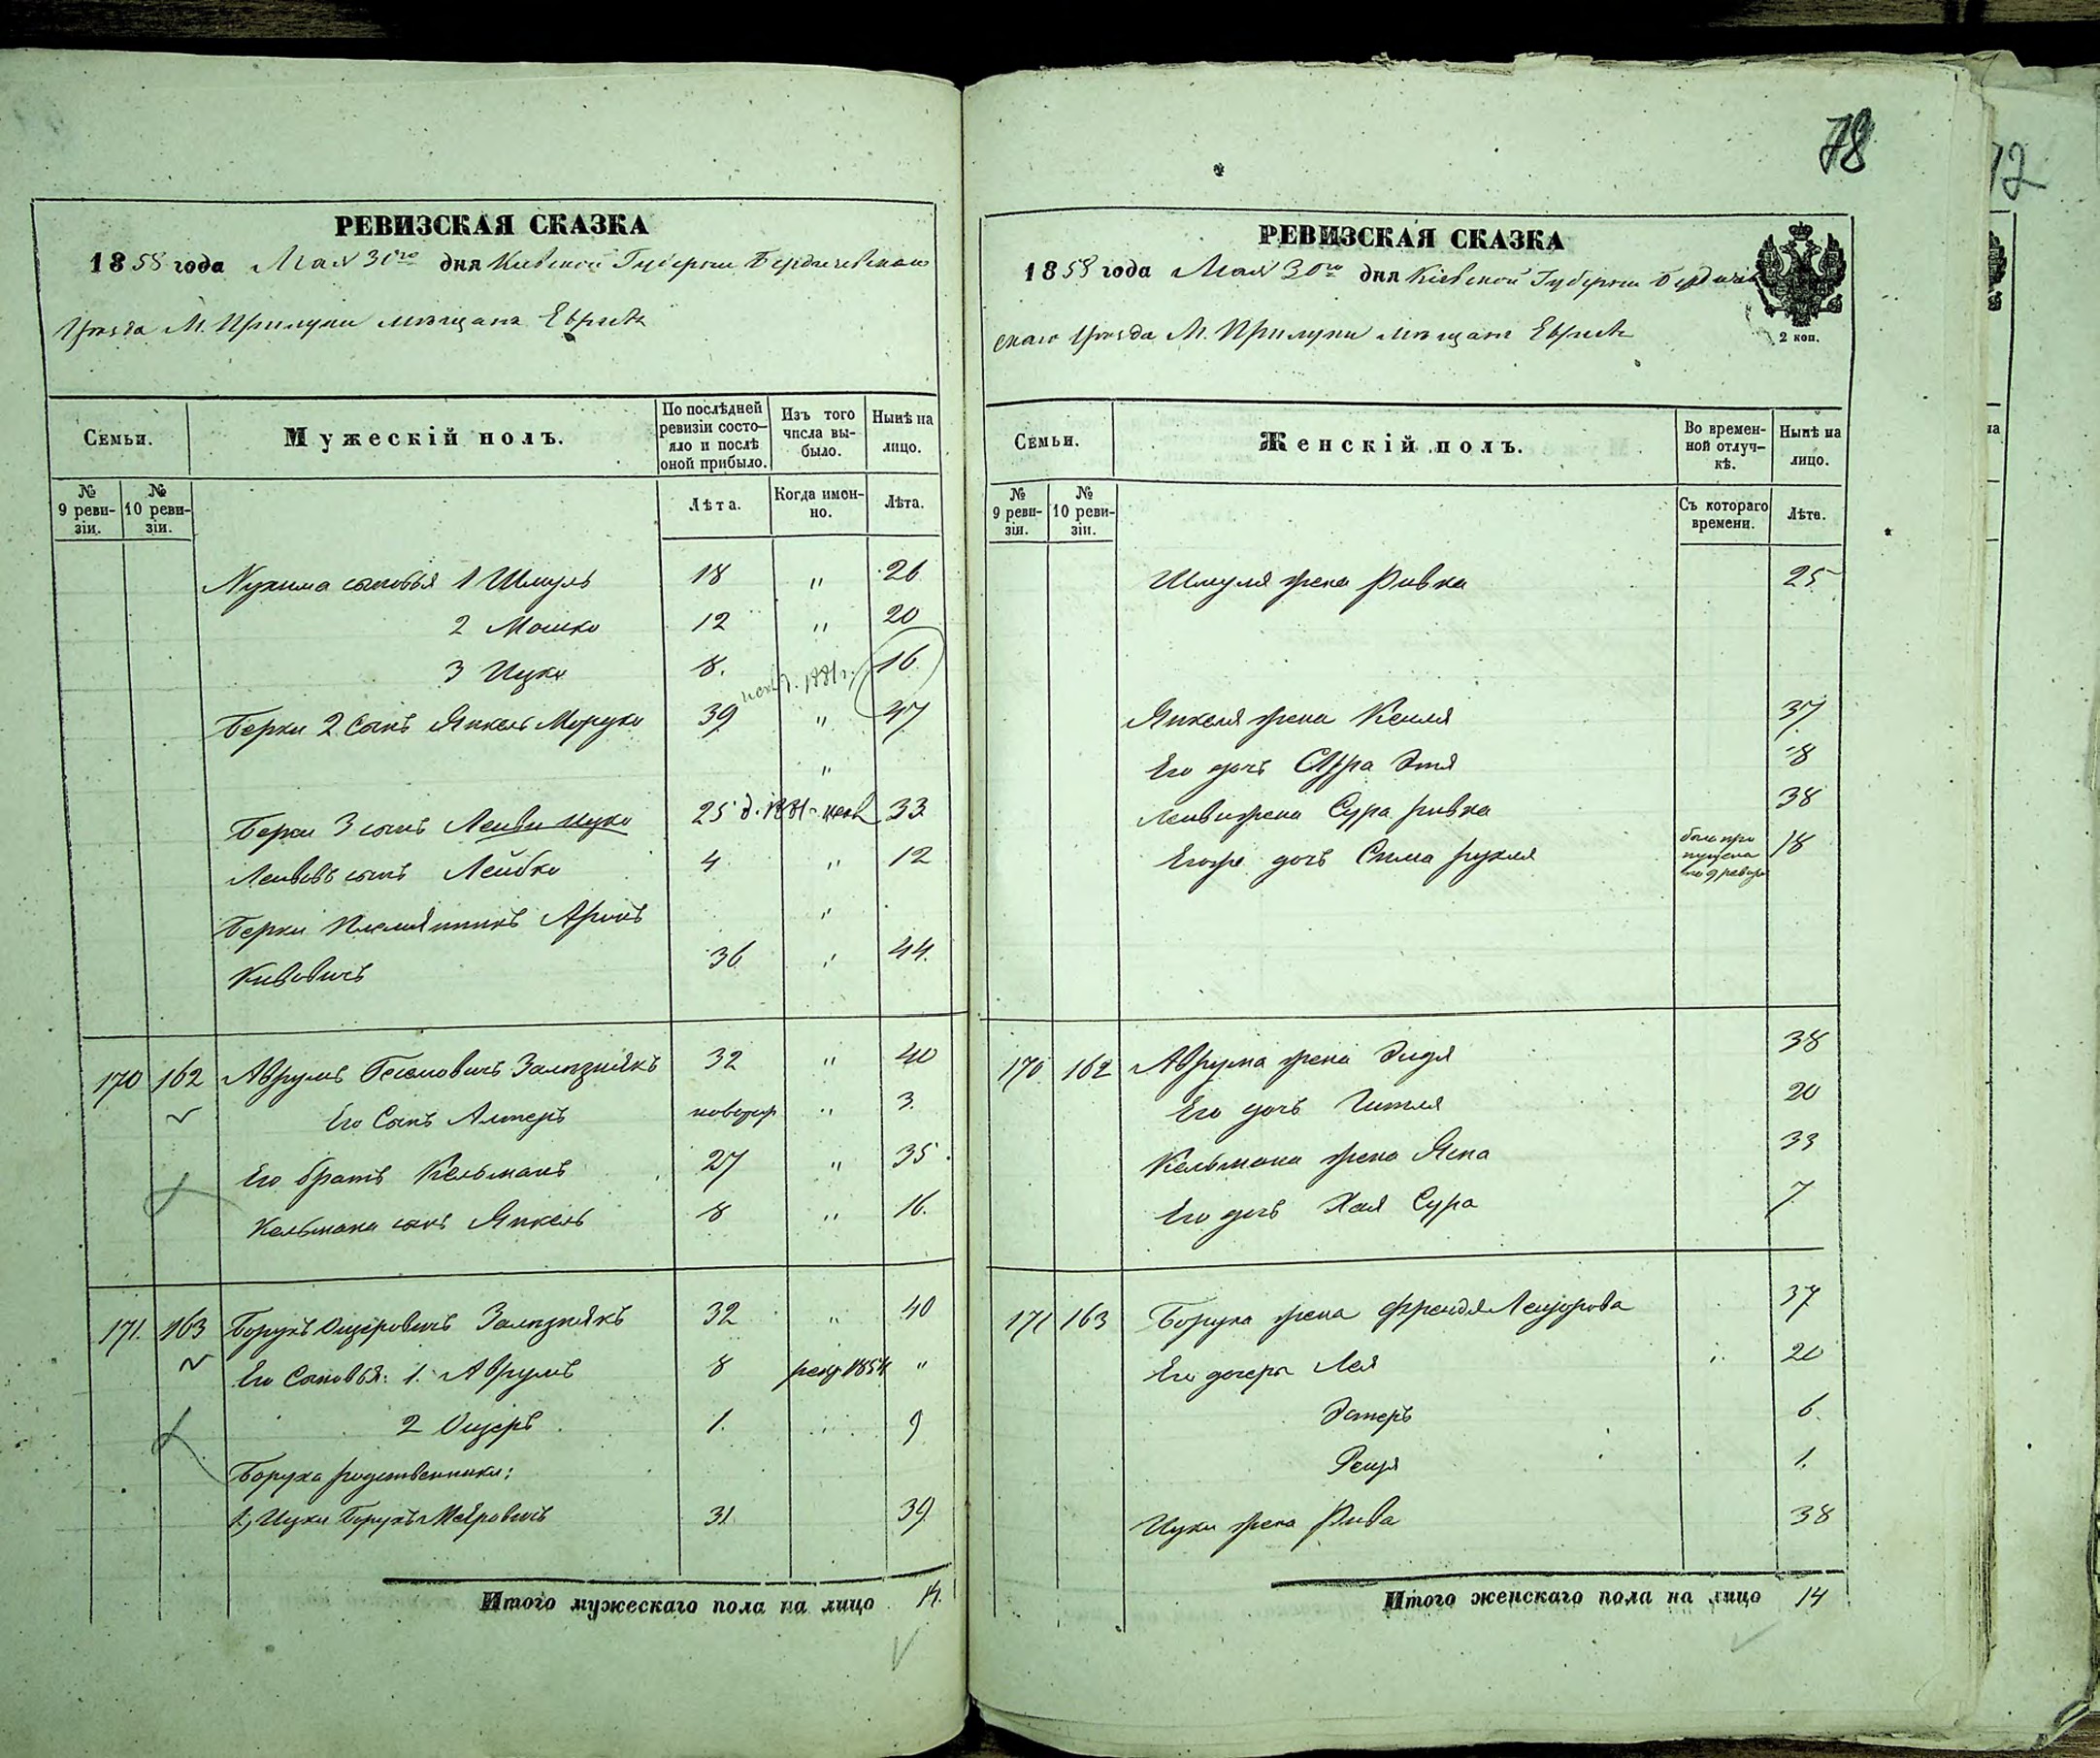 78
72
РЕВИЗСКАЯ СКАЗКА
1858 года Мая 30го дня Киевской Губернии Бердичевского
Уѣзда М. Прилуки мѣщанъ Евреевъ
Семьи.
Мужескій полъ.
По послѣдней ревизіи состояло и послѣ оной прибыло.
Изъ того числа выбыло.
Нынѣ на лицо.
№ 9 ревизіи.
№ 10 ревизіи.
Лѣта.
Когда именно.
Лѣта.
Нухима сыновья 1 Шмуль 18 " 26
2 Мошко 12 " 20
3 Ицко 8. 1881 г. 16
Берки 2 сынъ Янкель Мордко 39 " 47
"
Берки 3 сынъ Лейви Ицко 25 д. 1881 г. 33
Лейвовъ сынъ Лейбко 4 " 12
Берки племянникъ Аронъ "
Кивовичъ 36 " 44.
170 162 Аврумъ Зализнякъ 32 " 40
Его сынъ Алтеръ новорож " 3.
Его братъ Кельманъ 27 " 35
Кельмана сынъ Янкель 8 " 16.
171. 163 Борухъ Ошеровичъ Зализнякъ 32 " 40
Его сыновья: 1. Аврумъ 8 рекр 1854 "
2 Ошеръ 1. 9
Боруха родственники:
1, Ицки Борухъ Меѣровичъ 31. 39
Итого мужескаго пола на лицо 14.
РЕВИЗСКАЯ СКАЗКА
1858 года Мая 30го дня Кіевской Губернии Бердичев
скаго Уѣзда М. Прилуки мѣщанъ Евреевъ
2 коп.
Семьи.
Женскій полъ.
Во временной отлучкѣ.
Нынѣ на лицо.
№ 9 ревизіи.
№ 10 ревизіи.
Съ котораго времени.
Лѣта.
Шмуля жена Ривка 25
Янкеля жена Кейля 37
Его дочь Сура Этя 8
Лейви жена Сура Ривка 38
Егоже дочь Сима Рухля была пропущена по 9 ревизіи 18
170 162 Аврума жена Эйдя 38
Его дочь Гитля 20
Кельмана жена Яспа 33
Его дочь Хая Сура 7
171 163 Боруха жена Фрейдя Лейзорова 37
Его дочери Лея 20
Эстеръ 6.
Рейзя 1.
Ицки жена Рива 38
Итого женскаго пола на лицо 14